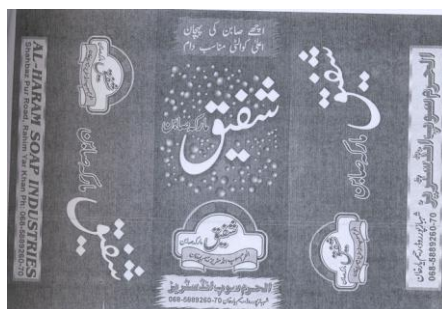 AL-HARAM SOAP INDUSTRIES
Shahbaz Pur Road, Rahim Yar Khan Ph: 068-5889260-70
شفیق
مارکہ صابن
شفیق
اچھے صابن کی پہچان
اعلیٰ کوالٹی مناسب دام
شفیق
مارکہ صابن
شفیق
مارکہ صابن
الحرم سوپ انڈسٹریز
شہباز پور روڈ، رحیم یار خان 068-5889260-70
شفیق
مارکہ صابن
شفیق
الحرم سوپ انڈسٹریز
شہباز پور روڈ، رحیم یار خان 068-5889260-70